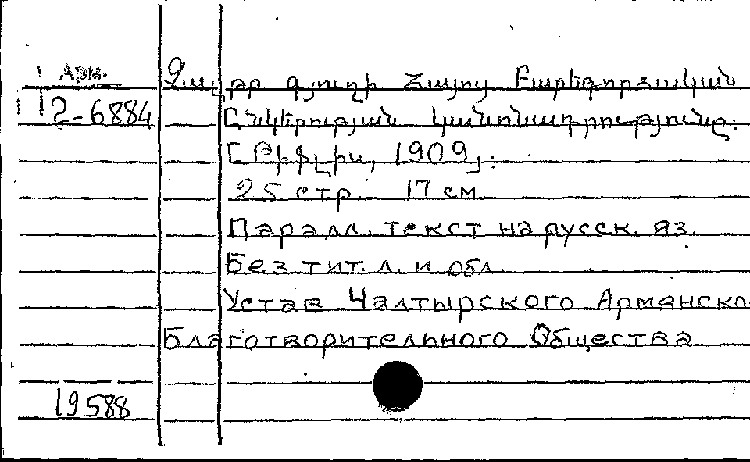 Арм.
112-6884
Չալթր գյուղի Հայոց Բարեգործական
Ընկերության կանոնադրությունը.
[Թիֆլիս, 1909]:
25 стр. 17 см
Паралл. текст на русск. яз.
Без тит. л. и обл.
Устав Чалтырского Армянско
Благотворительного Общества
19588